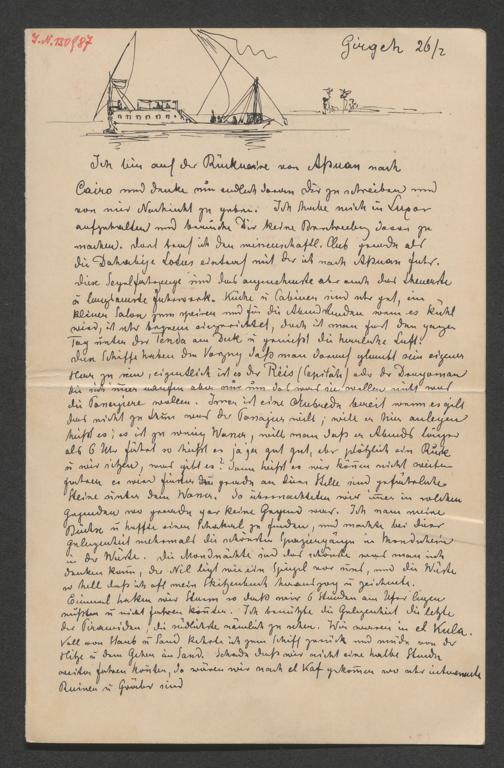 J.N. 130987
Girgeh 26/2
Ich bin auf der Rückreise von Aßuan nach
Cairo und denke nun endlich daran Dir zu schreiben und
von mir Nachricht zu geben. Ich habe mich in Luxor
aufgehalten und brauche Dir keine Beschreibung davon zu
machen. Dort traf ich den wissenschaftl. Club gerade als
die Dahabiye Lotus eintraf mit der ich nach Aßuan fuhr.
Diese Segelfahrzeuge sind das angenehmste aber auch das theuerste
u langsamste Fuhrwerk. Küche u Cabinen sind sehr gut, ein
kleiner Salon zum speisen und für die Abendstunden wenn es kühl
wird, ist sehr bequem eingerichtet, doch ist man fast den ganzen
Tag unter der Tenda am Deck u genießt die herrliche Luft.
Diese Schiffe haben den Vorzug daß man darauf glaubt sein eigener
Herr zu sein, eigentlich ist es der Reïs (Capitän) oder der Dragoman
die immer machen aber nur das was sie wollen nicht was
die Passagiere wollen. Immer ist eine Ausrede bereit wenn es gilt
das nicht zu thun was der Passagier will; will er hier anlegen
heißt es: es ist zu wenig Wasser, will man daß er Abends länger
als 6 Uhr fährt so heißt es ja ja gut gut, aber plötzlich ein Ruck
u wir sitzen, was gibt es? Dann heißt es wir können nicht weiter
fahren es wird finster und gerade an dieser Stelle sind gefährliche
Steine unter dem Wasser. So übernachteten wir immer in solchen
Gegenden wo gerade gar keine Gegend war. Ich nam meine
Büchse u hoffte einen Schakal zu finden, und machte bei dieser
Gelegenheit mehrmals die schönsten Spaziergänge im Mondschein
in der Wüste. Die Mondnächte sind das schönste was man sich
denken kann, der Nil liegt wie ein Spiegel vor uns, und die Wüste
so hell daß ich oft mein Skizzenbuch herauszog u zeichnete.
Einmal hatten wir Sturm so daß wir 6 Stunden am Ufer liegen
mußten u nicht fahren konnten. Ich benützte die Gelegenheit die letzte
der Piramiden, die südlichste nämlich zu sehen. Wir waren in el Kula.
Voll von Staub u Sand kehrte ich zum Schiff zurück und müde von der
Hitze u dem Gehen im Sand. Schade daß wir nicht eine halbe Stunde
weiter fahren konnten, da wären wir nach el Kaf gekommen wo sehr interessante
Ruinen u Gräber sind